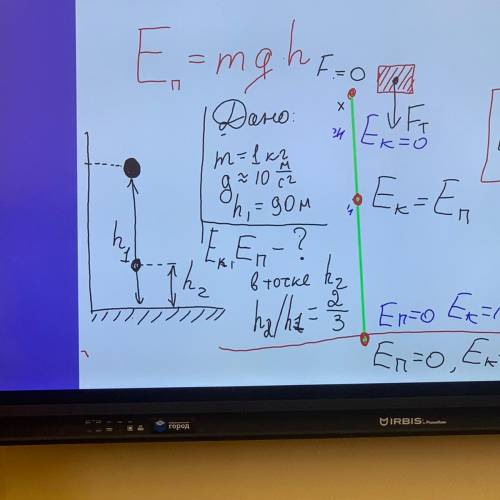 Eп = mgh
F = 0
x
Fт
Eк = 0
Дано:
m = 1 кг
g ≈ 10 м/с²
h₁ = 90 м
Eк, Eп - ?
в точке h₂
h₂/h₁ = 2/3
h₁
h₂
Eк = Eп
Eп = 0 Eк =
Eп = 0, Eк =
город
IRBIS